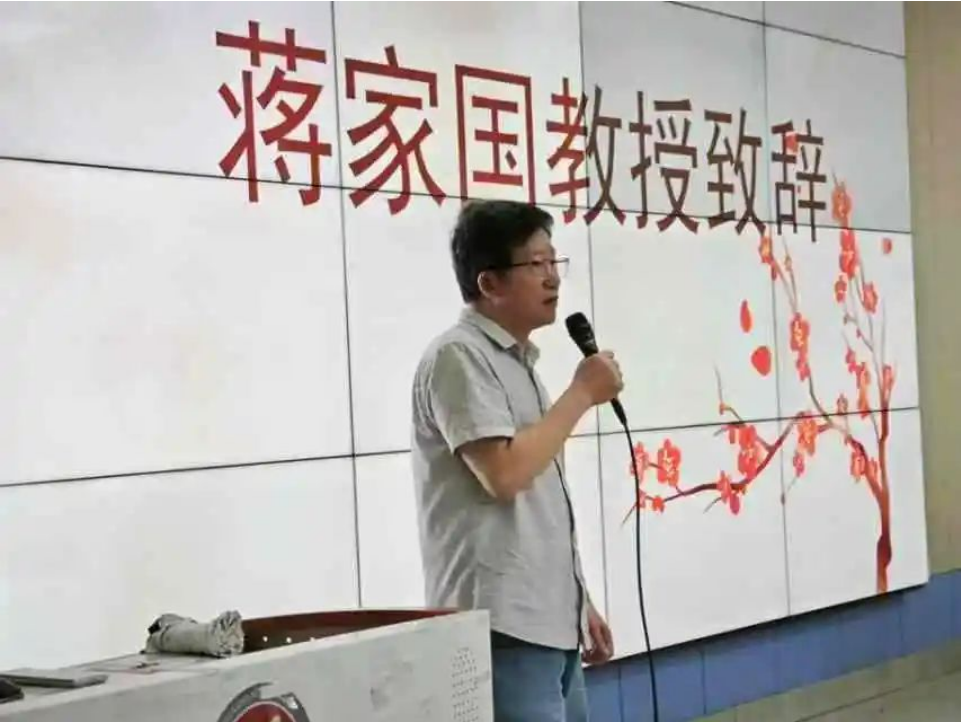 蒋家国教授致辞